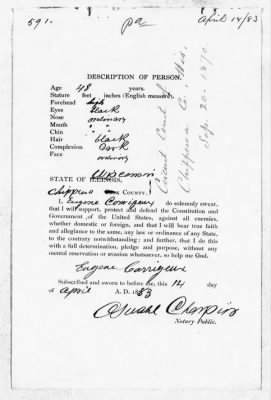 591.
pa
April 14/83
DESCRIPTION OF PERSON.
Age 48 years.
Stature feet inches (English measure).
Forehead high
Eyes black
Nose ordinary
Mouth "
Chin "
Hair black
Complexion Dark
Face ordinary
Circuit Court of
Chippewa Co. Wis.
Sep. 20-1870
Wisconsin
STATE OF ILLINOIS,
Chippewa COUNTY.
I, Eugene do solemnly swear,
that I will support, protect and defend the Constitution and
Government of the United States, against all enemies,
whether domestic or foreign, and that I will bear true faith
and allegiance to the same, any law or ordinance of any State,
to the contrary notwithstanding; and further, that I do this
with a full determination, pledge and purpose, without any
mental reservation or evasion whatsoever, so help me God.
Eugene
Subscribed and sworn to before me, this 14 day
of April A. D. 1883
Notary Public.